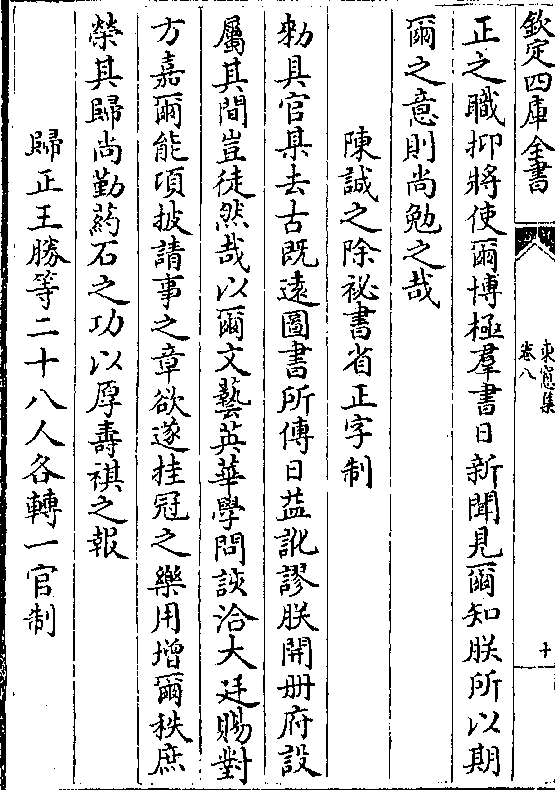 欽定四庫全書
東窻集
卷八
十
正之職抑將使爾博極羣書日新聞見爾知朕所以期
爾之意則尚勉之哉
陳誠之除祕書省正字制
勑具官某去古既逺圖書所傳日益訛謬朕開册府設
屬其間豈徒然哉以爾文藝英華學問詼洽大廷賜對
方嘉爾能項披請事之章欲遂挂冠之樂用增爾秩庶
榮其歸尚勤葯石之功以厚壽祺之報
歸正王勝等二十八人各轉一官制